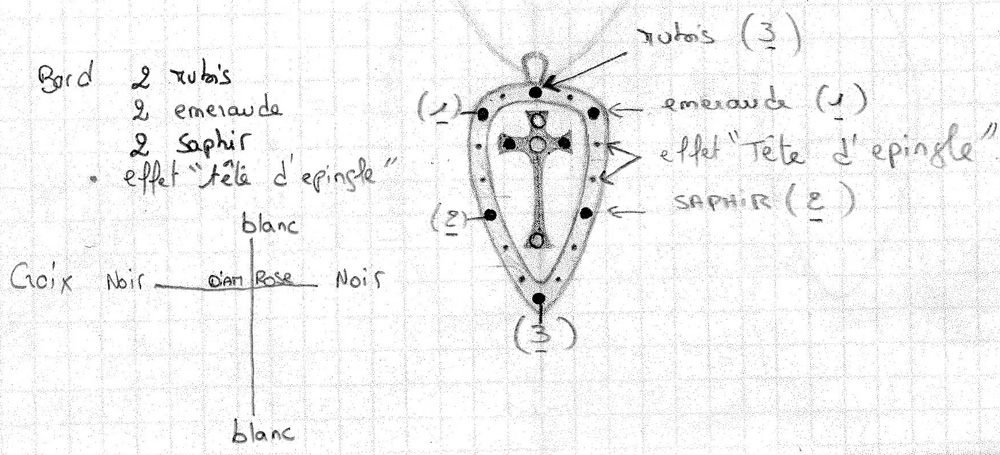 Bord 2 rubis
2 emeraude
2 saphir
• effet "tête d'epingle"
blanc
Croix Noir DiAM ROSE Noir
blanc
rubis (3)
(1) emeraude (1)
effet "Tête d'epingle"
(2) SAPHIR (2)
(3)